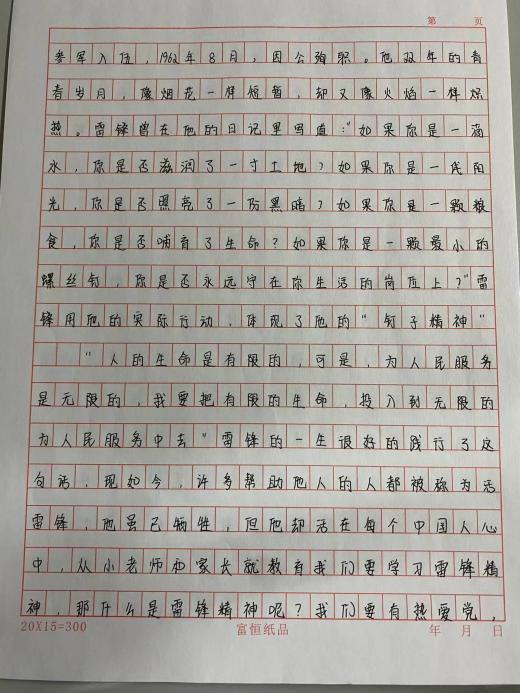 第 页
参军入伍，1962年8月，因公殉职。他双年的青
春岁月，像烟花一样短暂，却又像火焰一样炽
热。雷锋曾在他的日记里写道："如果你是一滴
水，你是否滋润了一寸土地？如果你是一线阳
光，你是否照亮了一份黑暗？如果你是一颗粮
食，你是否哺育了生命？如果你是一颗最小的
螺丝钉，你是否永远守在你生活的岗位上？"雷
锋用他的实际行动，体现了他的"钉子精神"
"人的生命是有限的，可是，为人民服务
是无限的，我要把有限的生命，投入到无限的
为人民服务中去"雷锋的一生很好的践行了这
句话，现如今，许多帮助他人的人都被称为活
雷锋，他虽已牺牲，但他却活在每个中国人心
中，从小老师和家长就教育我们要学习雷锋精
神，那什么是雷锋精神呢？我们要有热爱党，
20X15=300 富恒纸品 年 月 日